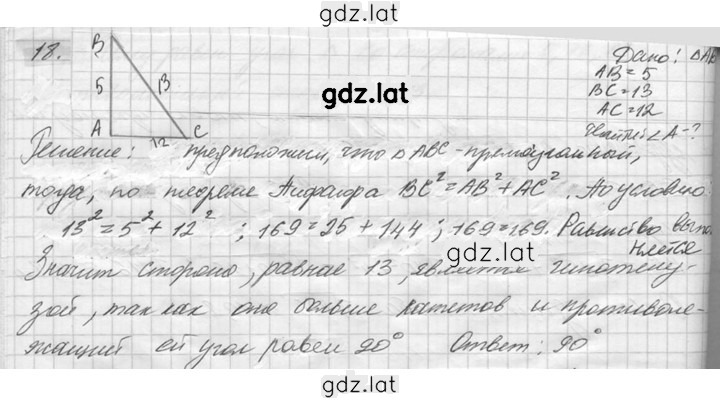 gdz.lat
18.
B
5
13
A
12
C
Дано: △AB
AB = 5
BC = 13
AC = 12
Найти: ∠A - ?
gdz.lat
Решение: предположим, что △ABC - прямоугольный,
тогда, по теореме Пифагора BC² = AB² + AC². По условию:
13² = 5² + 12² ; 169 = 25 + 144 ; 169 = 169. Равенство выпо
лняется
Значит сторона, равная 13, является гипотену-
зой, так как она больше катетов и противоле-
жащий ей угол равен 90° Ответ: 90°
gdz.lat
gdz.lat